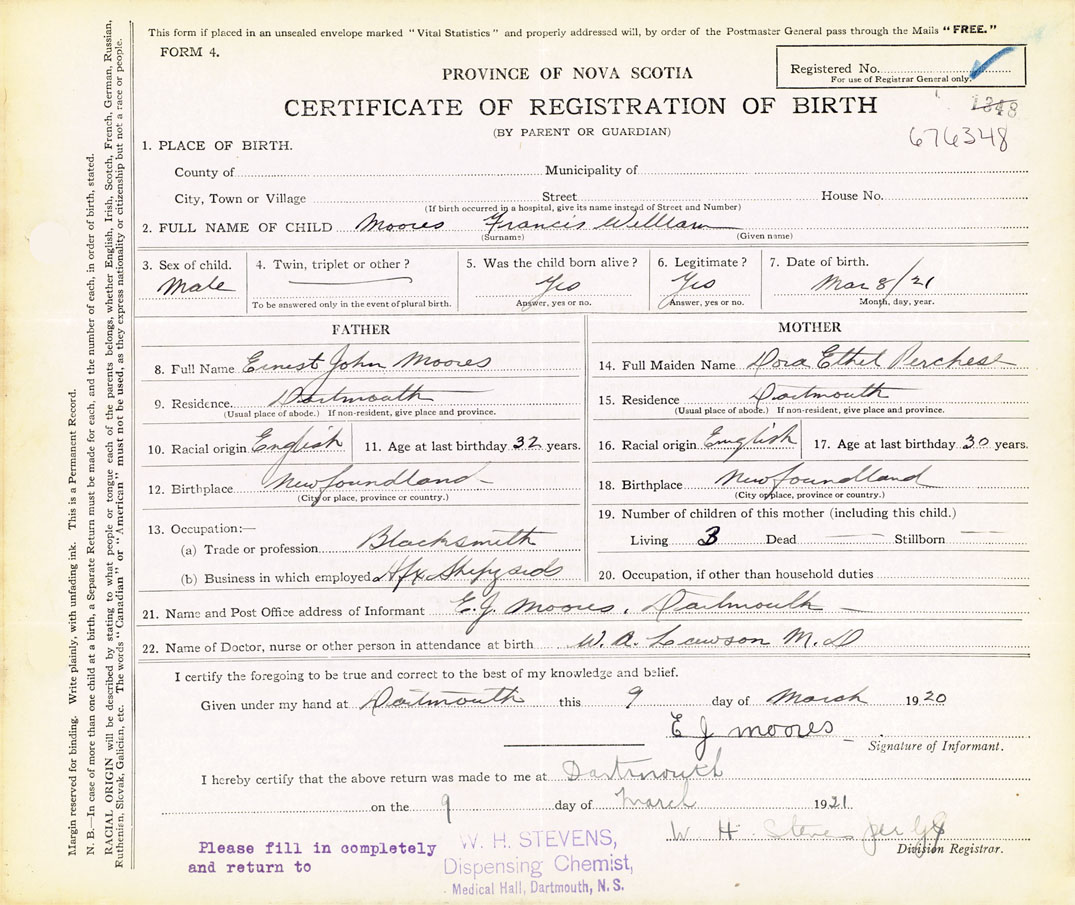 This form if placed in an unsealed envelope marked "Vital Statistics" and properly addressed will, by order of the Postmaster General pass through the Mails "FREE."
FORM 4.
Registered No.
For use of Registrar General only.
PROVINCE OF NOVA SCOTIA
CERTIFICATE OF REGISTRATION OF BIRTH
1348
(BY PARENT OR GUARDIAN)
676348
1. PLACE OF BIRTH.
County of Municipality of
City, Town or Village Street House No.
(If birth occurred in a hospital, give its name instead of Street and Number)
2. FULL NAME OF CHILD Moores Francis William
(Surname) (Given name)
3. Sex of child. 4. Twin, triplet or other? 5. Was the child born alive? 6. Legitimate? 7. Date of birth.
Male Yes Yes Mar 8/21
To be answered only in the event of plural birth. Answer, yes or no. Answer, yes or no. Month, day, year.
FATHER
8. Full Name Ernest John Moores
9. Residence. Dartmouth
(Usual place of abode.) If non-resident, give place and province.
10. Racial origin English 11. Age at last birthday 32 years.
12. Birthplace Newfoundland
(City or place, province or country.)
13. Occupation:—
(a) Trade or profession Blacksmith
(b) Business in which employed Hfx Shipyards
MOTHER
14. Full Maiden Name Dora Ethel
15. Residence Dartmouth
(Usual place of abode.) If non-resident, give place and province.
16. Racial origin English 17. Age at last birthday 30 years.
18. Birthplace Newfoundland
(City or place, province or country.)
19. Number of children of this mother (including this child.)
Living 3 Dead Stillborn
20. Occupation, if other than household duties
21. Name and Post Office address of Informant E.J. Moores, Dartmouth
22. Name of Doctor, nurse or other person in attendance at birth W. A. Lawson M.D
I certify the foregoing to be true and correct to the best of my knowledge and belief.
Given under my hand at Dartmouth this 9 day of March 1920
E J Moores
Signature of Informant.
I hereby certify that the above return was made to me at Dartmouth
on the 9 day of March 1921
W H Stevens per
Division Registrar.
Please fill in completely
and return to
W. H. STEVENS,
Dispensing Chemist,
Medical Hall, Dartmouth, N. S.
Margin reserved for binding. Write plainly, with unfading ink. This is a Permanent Record.
N. B.—In case of more than one child at a birth, a Separate Return must be made for each, and the number of each, in order of birth, stated.
RACIAL ORIGIN will be described by stating to what people or tongue each of the parents belongs, whether English, Irish, Scotch, French, German, Russian,
Ruthenian, Slovak, Galician, etc. The words "Canadian" or "American" must not be used, as they express nationality or citizenship but not a race or people.